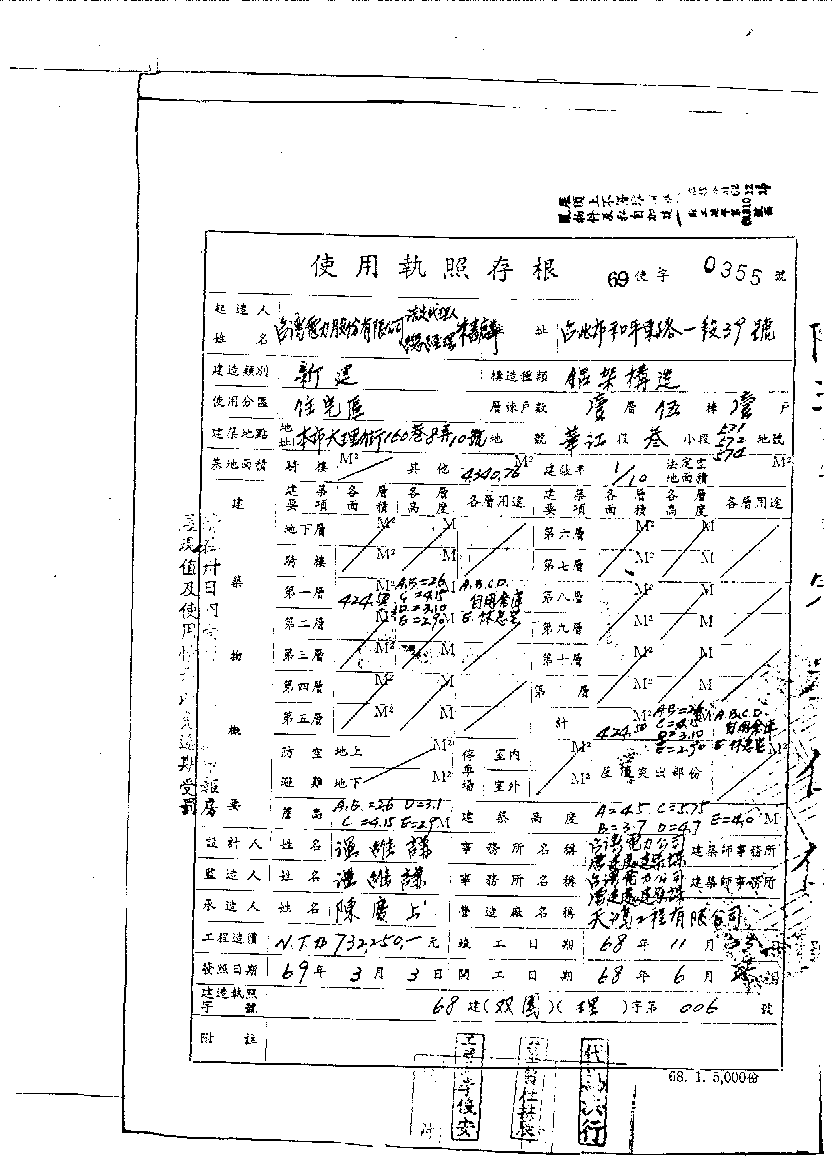 使用執照存根 69使字 0355 號
起造人姓名 台灣電力股份有限公司 法定代理人 總經理 址 台北市和平東路一段39號
建造類別 新建 構造種類 鋁架構造
使用分區 住宅區 層棟戶數 壹層伍棟壹戶
建築地點 地址 本市大理街160巷8弄10號 地號 華江段叁小段 571 572 574 地號
基地面積 騎樓 M² 其他 4340.76 建蔽率 1/10 法定空地面積 M²
建築要項 各層面積 各層高度 各層用途 建築要項 各層面積 各層高度 各層用途
地下層 M² M 第六層 M² M
騎樓 M² M 第七層 M² M
第一層 424.50 M² A.B=2.6 C=4.15 D=3.10 E=2.90 M A.B.C.D. 自用倉庫 E. 休息室 第八層 M² M
第二層 M² M 第九層 M² M
第三層 M² M 第十層 M² M
第四層 M² M 第 層 M² M
第五層 M² M 計 424.50 M² A.B=2.6 C=4.15 D=3.10 E=2.90 M A.B.C.D. 自用倉庫 E. 休息室
建築物概要
防空避難 地上 M² 停車場 室內 M² 屋頂突出部份 M²
地下 M² 室外 M²
簷高 A.B.=2.6 D=3.1 C=4.15 E=2.9 M 建築高度 A=4.5 C=5.75 B=3.7 D=4.7 E=4.0 M
設計人 姓名 維謀 事務所名稱 台灣電力公司 建築師事務所
監造人 姓名 維謀 事務所名稱 台灣電力公司 建築師事務所
承造人 姓名 陳慶 營造廠名稱 工程有限公司
工程造價 N.T.$732,250.— 元 竣工日期 68年11月
發照日期 69年3月3日 開工日期 68年6月
建造執照字號 68建(双園)(理)字第006號
附註
68. 1. 5,000份